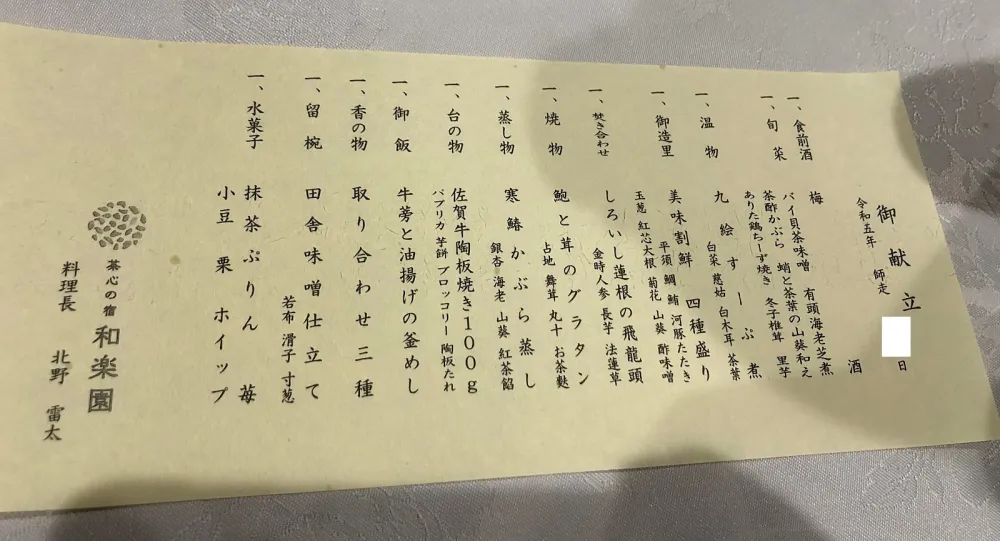 御献立
令和五年 師走 日
一、食前酒 梅 酒
一、旬菜 バイ貝茶味噌 有頭海老芝煮
茶酢かぶら 蛸と茶葉の山葵和え
ありた鶏ちーず焼き 冬子椎茸 里芋
一、温物 九絵すーぷ煮
白菜 慈姑 白木耳 茶葉
一、御造里 美味割鮮 四種盛り
平須 鯛 鮪 河豚たたき
玉葱 紅芯大根 菊花 山葵 酢味噌
一、焚き合わせ しろいし蓮根の飛龍頭
金時人参 長芋 法蓮草
一、焼物 鮑と茸のグラタン
占地 舞茸 丸十 お茶麩
一、蒸し物 寒鰆かぶら蒸し
銀杏 海老 山葵 紅茶餡
一、台の物 佐賀牛陶板焼き100g
パプリカ 芋餅 ブロッコリー 陶板たれ
一、御飯 牛蒡と油揚げの釜めし
一、香の物 取り合わせ三種
一、留椀 田舎味噌仕立て
若布 滑子 寸葱
一、水菓子 抹茶ぷりん 苺
小豆 栗 ホイップ
茶心の宿 和楽園
料理長 北野 雷太